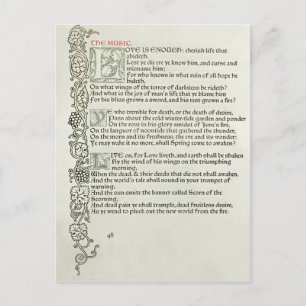 THE MUSIC.
LOVE IS ENOUGH: cherish life that
abideth,
Lest ye die ere ye know him, and curse and
misname him;
For who knows in what ruin of all hope he
hideth,
On what wings of the terror of darkness he rideth?
And what is the joy of man's life that ye blame him
For his bliss grown a sword, and his rest grown a fire?
Ye who tremble for death, or the death of desire,
Pass about the cold winter-tide garden and ponder
On the rose in his glory amidst of June's fire,
On the languor of noontide that gathered the thunder,
On the morn and its freshness, the eve and its wonder:
Ye may wake it no more, shall Spring come to awaken?
Live on, for Love liveth, and earth shall be shaken
By the wind of his wings on the triumphing
morning,
When the dead, & their deeds that die not shall awaken,
And the world's tale shall sound in your trumpet of
warning,
And the sun smite the banner called Scorn of the
Scorning,
And dead pain ye shall trample, dead fruitless desire,
As ye wend to pluck out the new world from the fire.
48